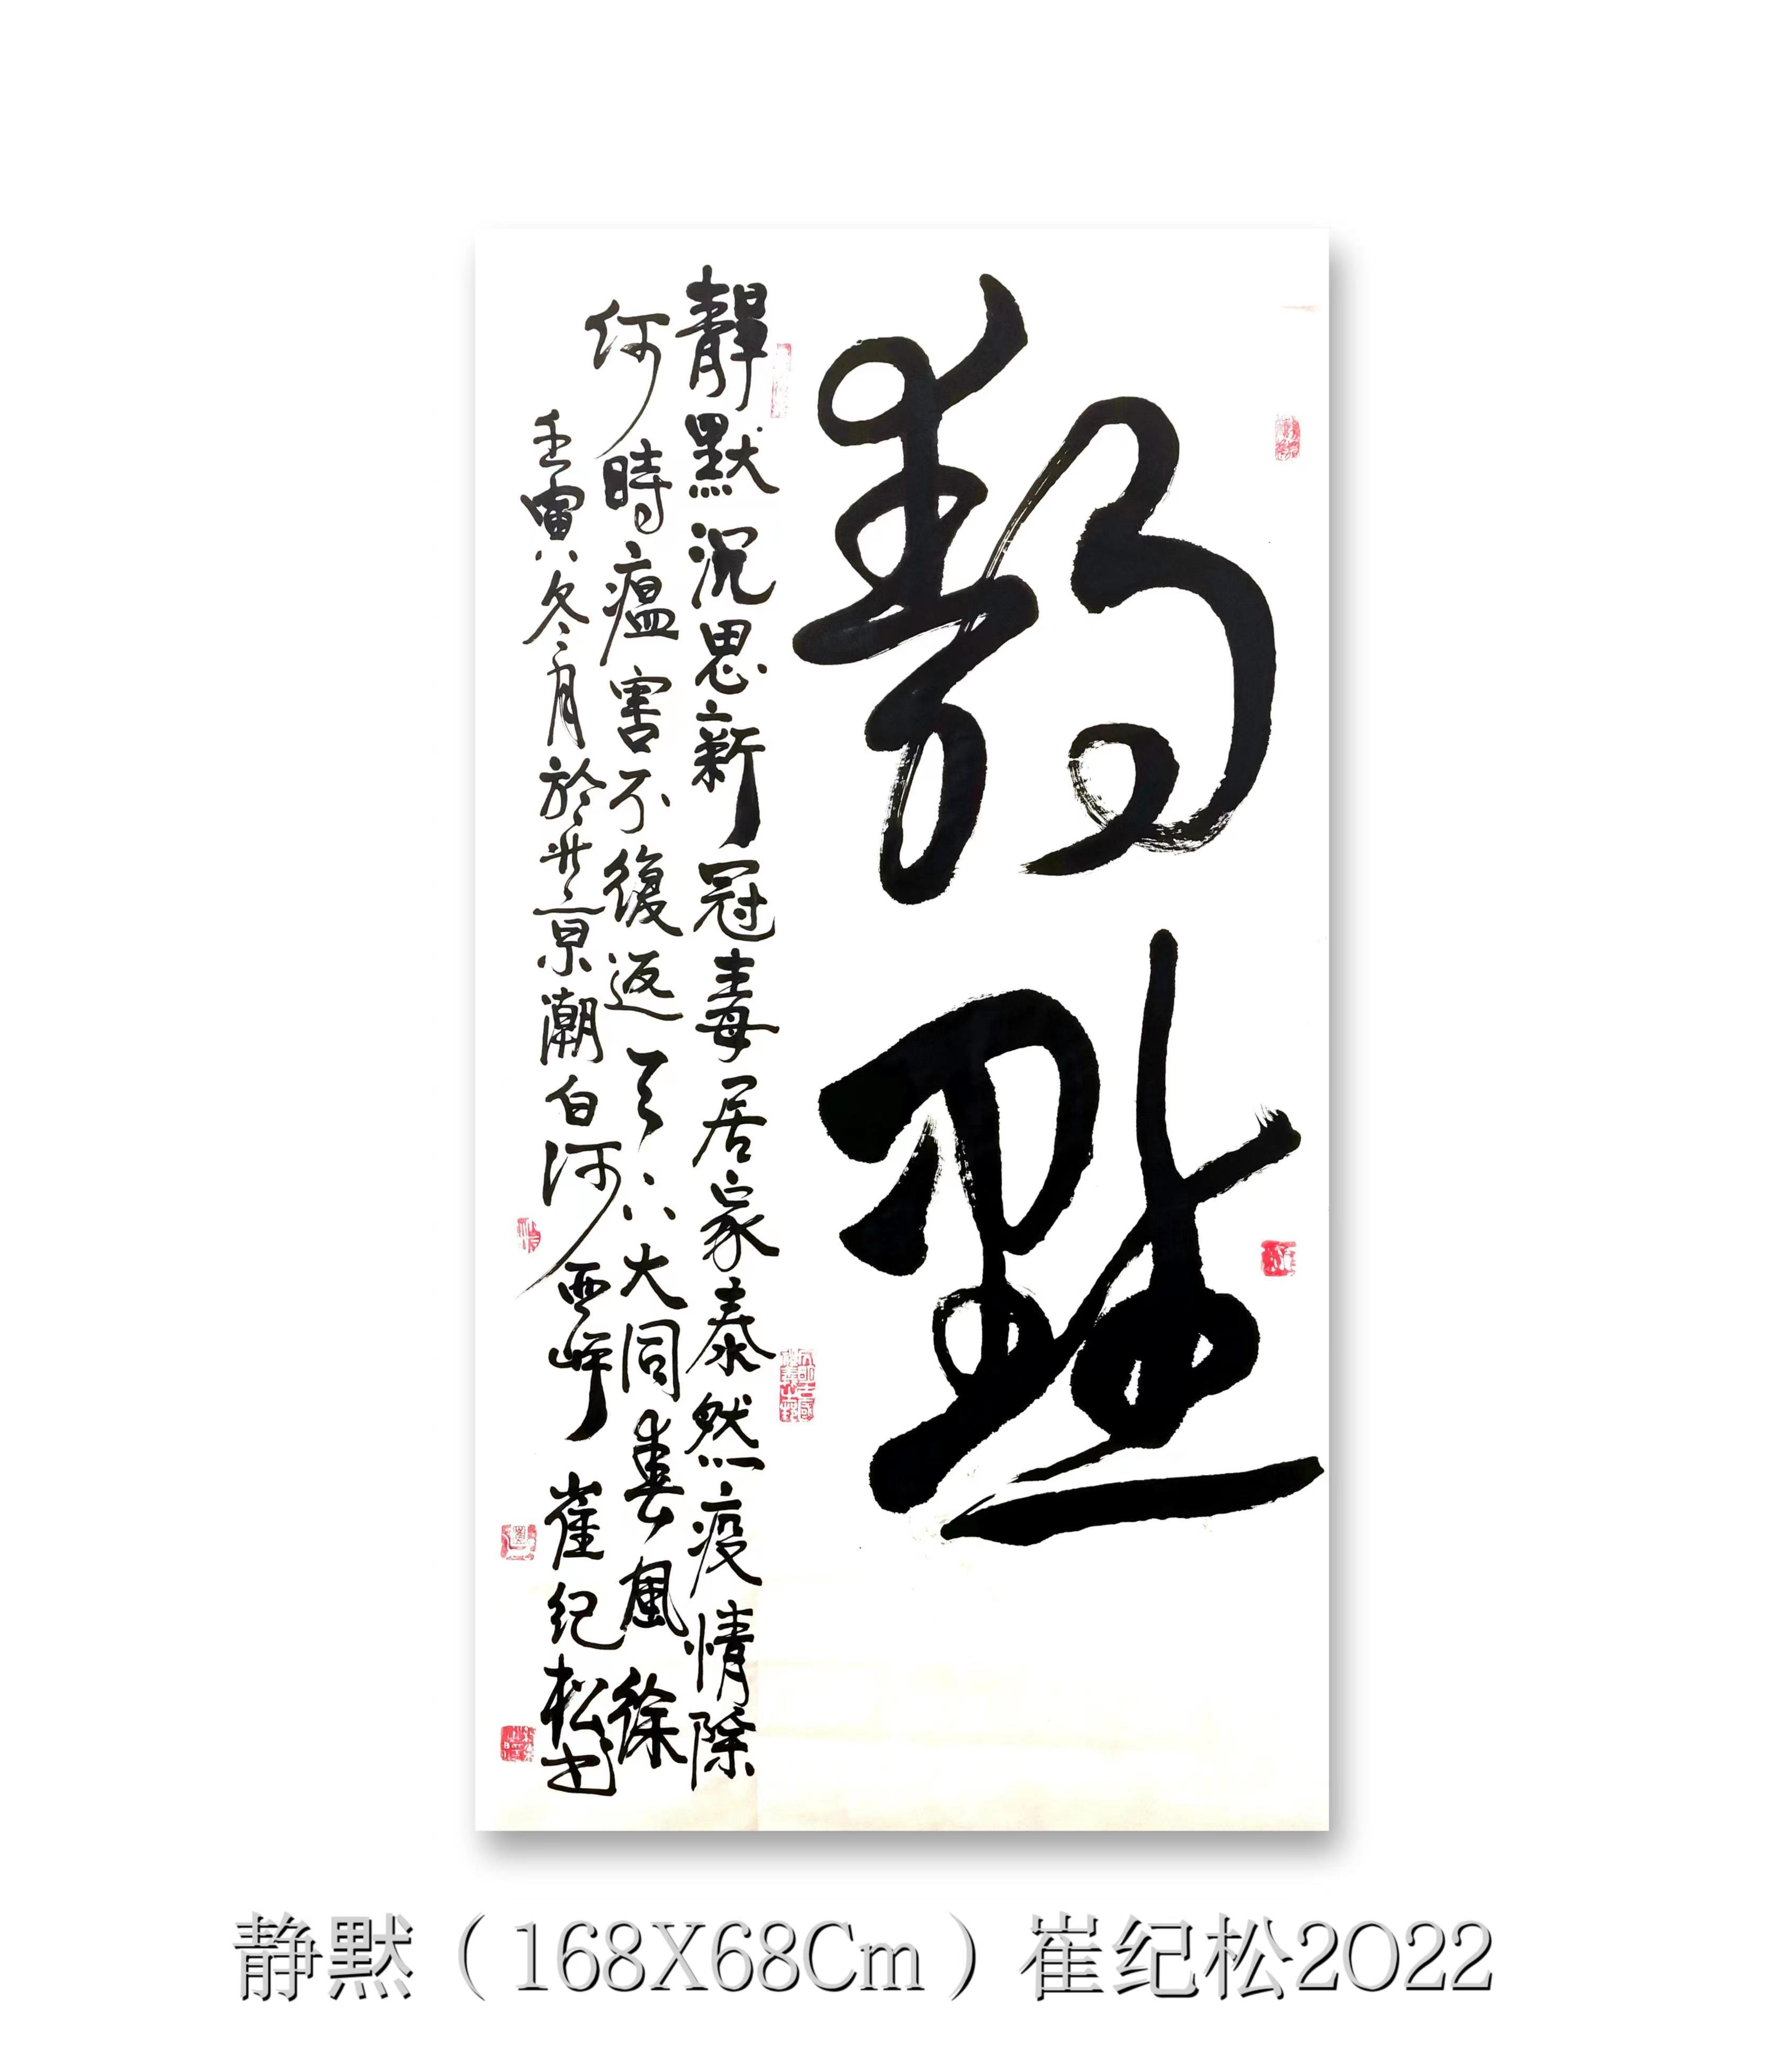 靜默
靜默沉思新冠毒居家泰然疫情除
何時瘟害不復返天下大同春風徐
壬寅冬月於北京潮白河西岸 崔纪松书
静默（168X68Cm）崔纪松2022